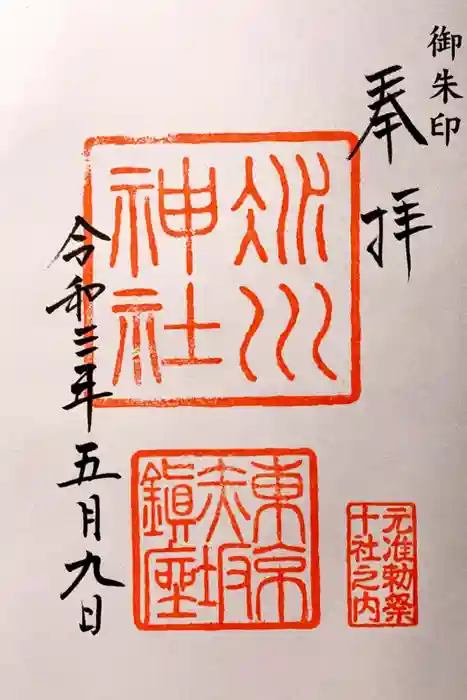 御朱印
奉拝
氷川
神社
東京
赤坂
鎮座
元准勅祭
十社之内
令和三年五月九日